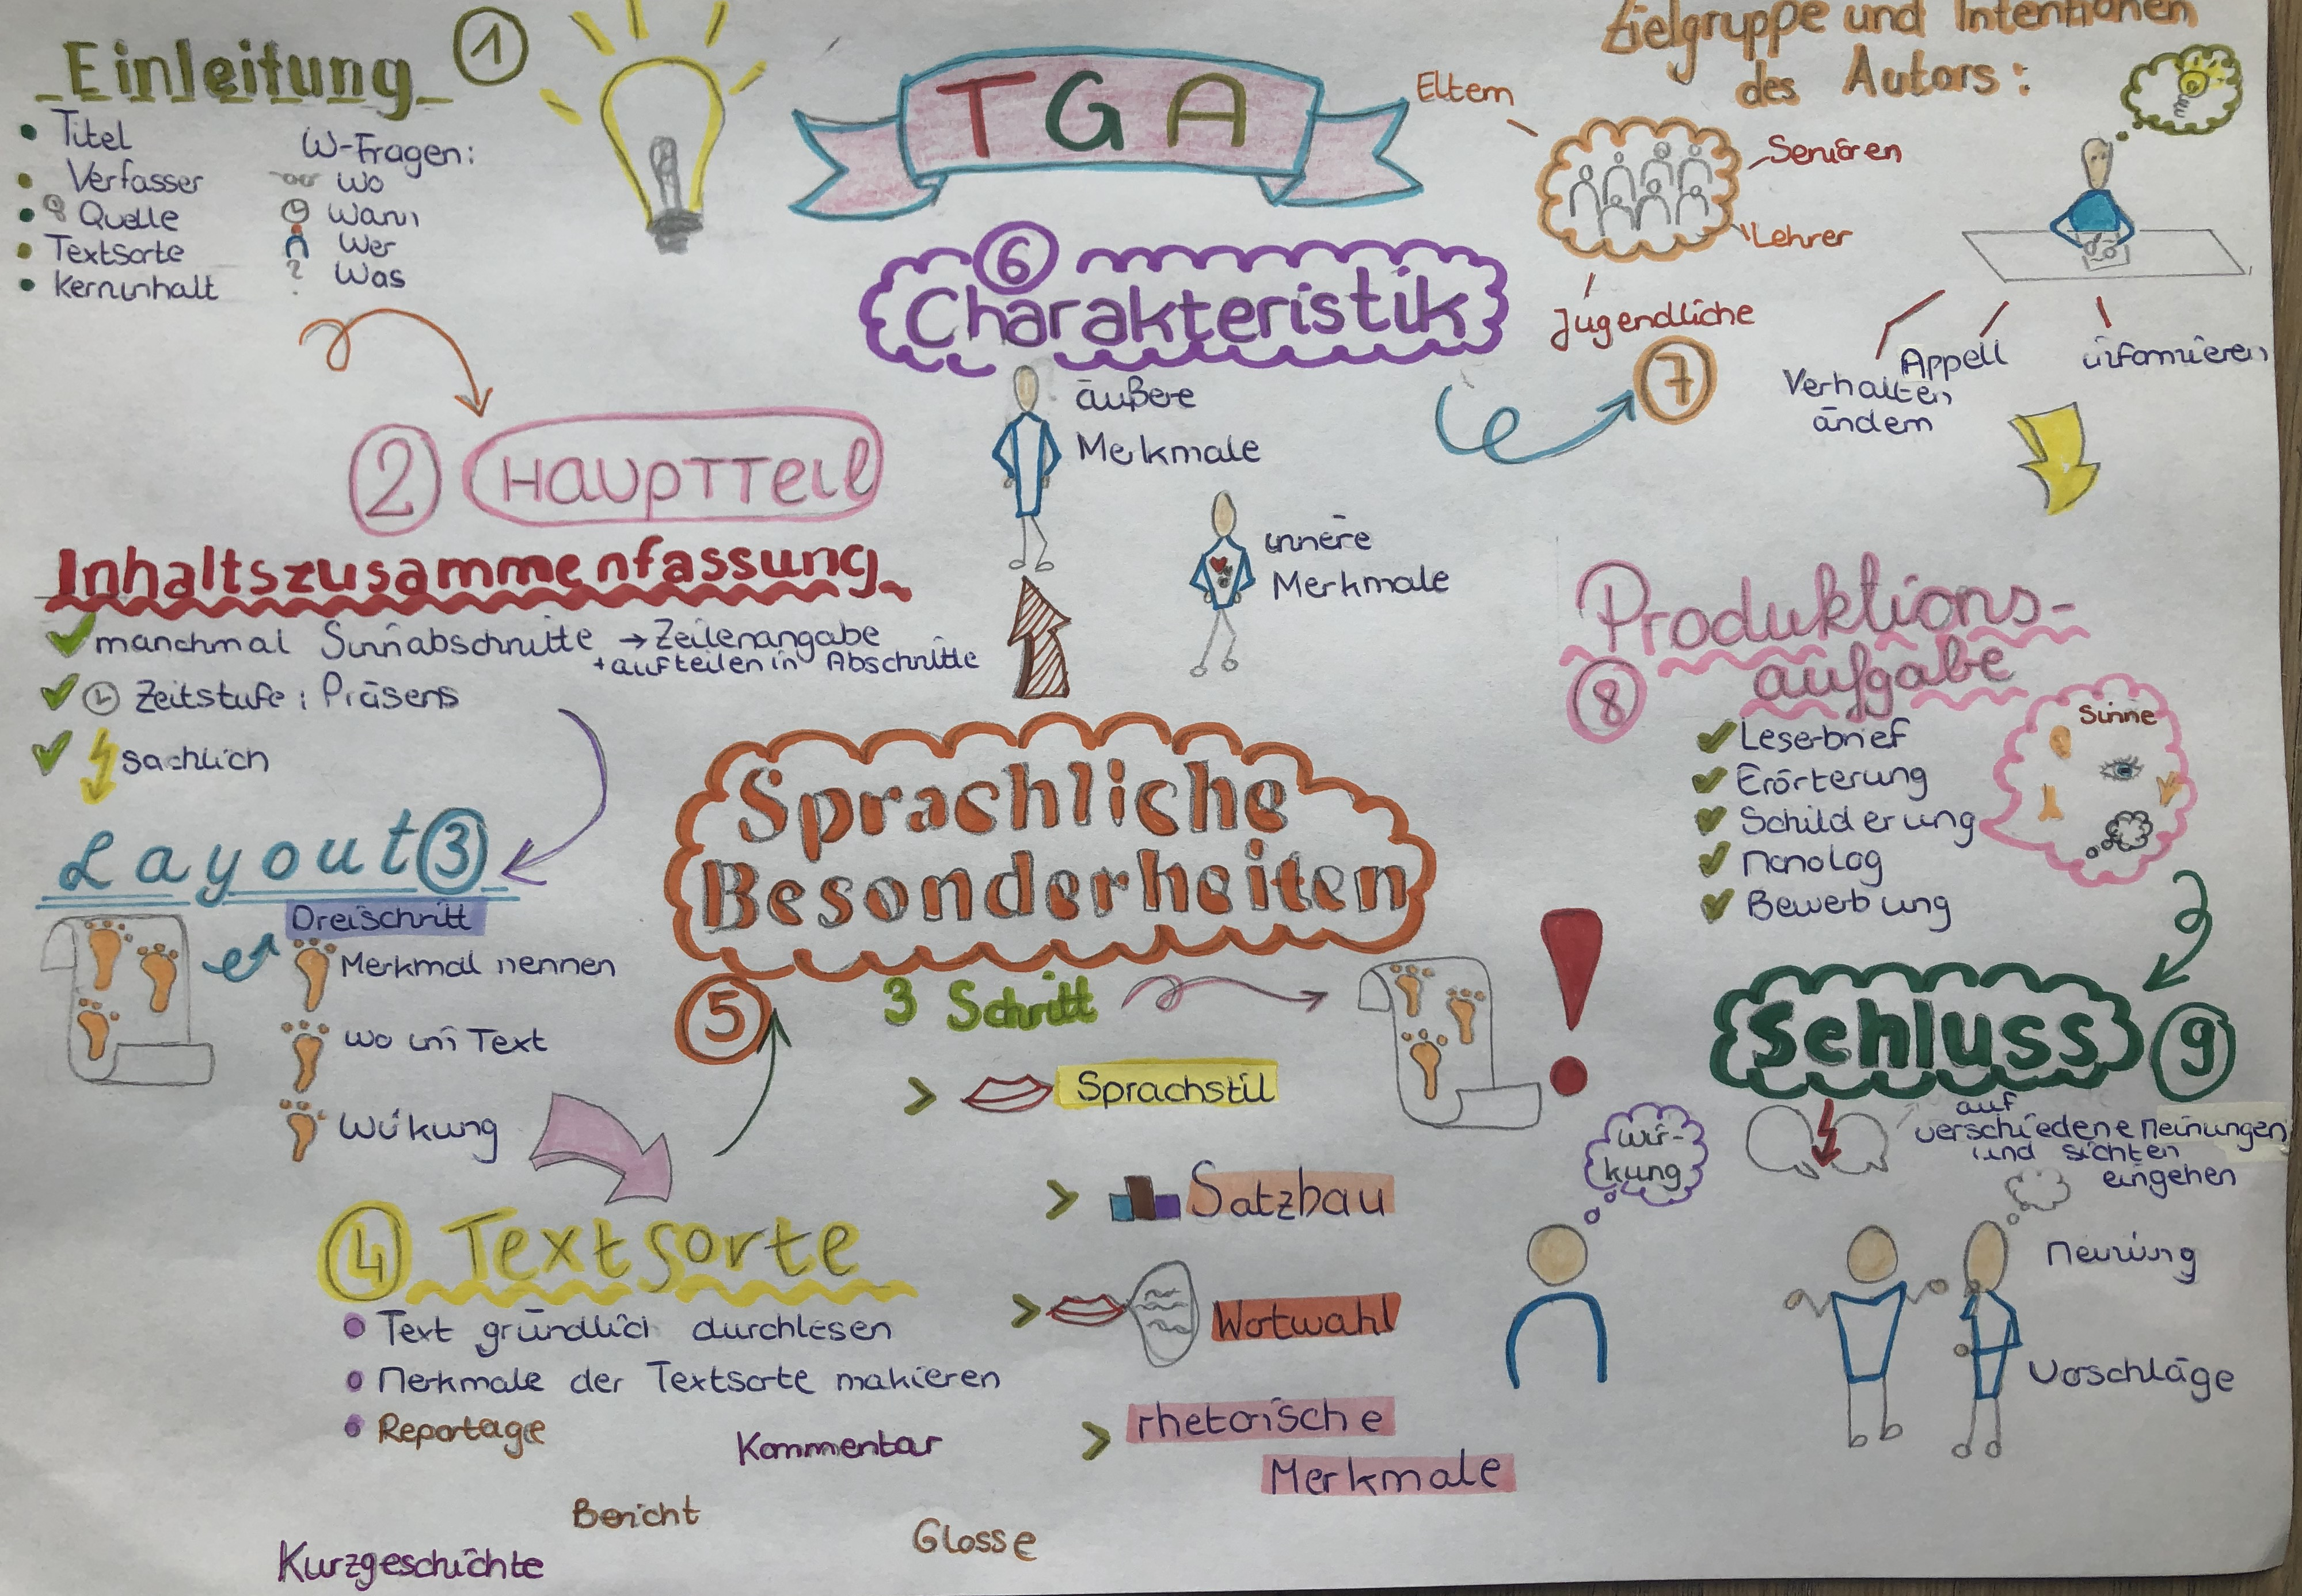 TGA
Einleitung 1
Titel
Verfasser
Quelle
Textsorte
Kerninhalt
W-Fragen:
wo
wann
wer
was
2 Hauptteil
Inhaltszusammenfassung
manchmal Sinnabschnitte → Zeilenangabe
+ aufteilen in Abschnitte
Zeitstufe: Präsens
sachlich
Layout 3
Dreischritt
Merkmal nennen
wo im Text
Wirkung
4 Textsorte
Text gründlich durchlesen
Merkmale der Textsorte makieren
Reportage
Kommentar
Bericht
Glosse
Kurzgeschichte
Sprachliche
Besonderheiten
5
3 Schritt
> Sprachstil
> Satzbau
> Wotwahl
> rhetorische
Merkmale
Wir-
kung
6
Charakteristik
äußere
Merkmale
innere
Merkmale
Zielgruppe und Intentionen
des Autors:
7
Eltern
Senioren
Lehrer
Jugendliche
Verhalten
ändern
Appell
informieren
Produktions-
aufgabe
8
Leserbrief
Erörterung
Schilderung
Monolog
Bewerbung
Sinne
Schluss 9
auf
verschiedene Meinungen
und sichten
eingehen
Meinung
Vorschläge